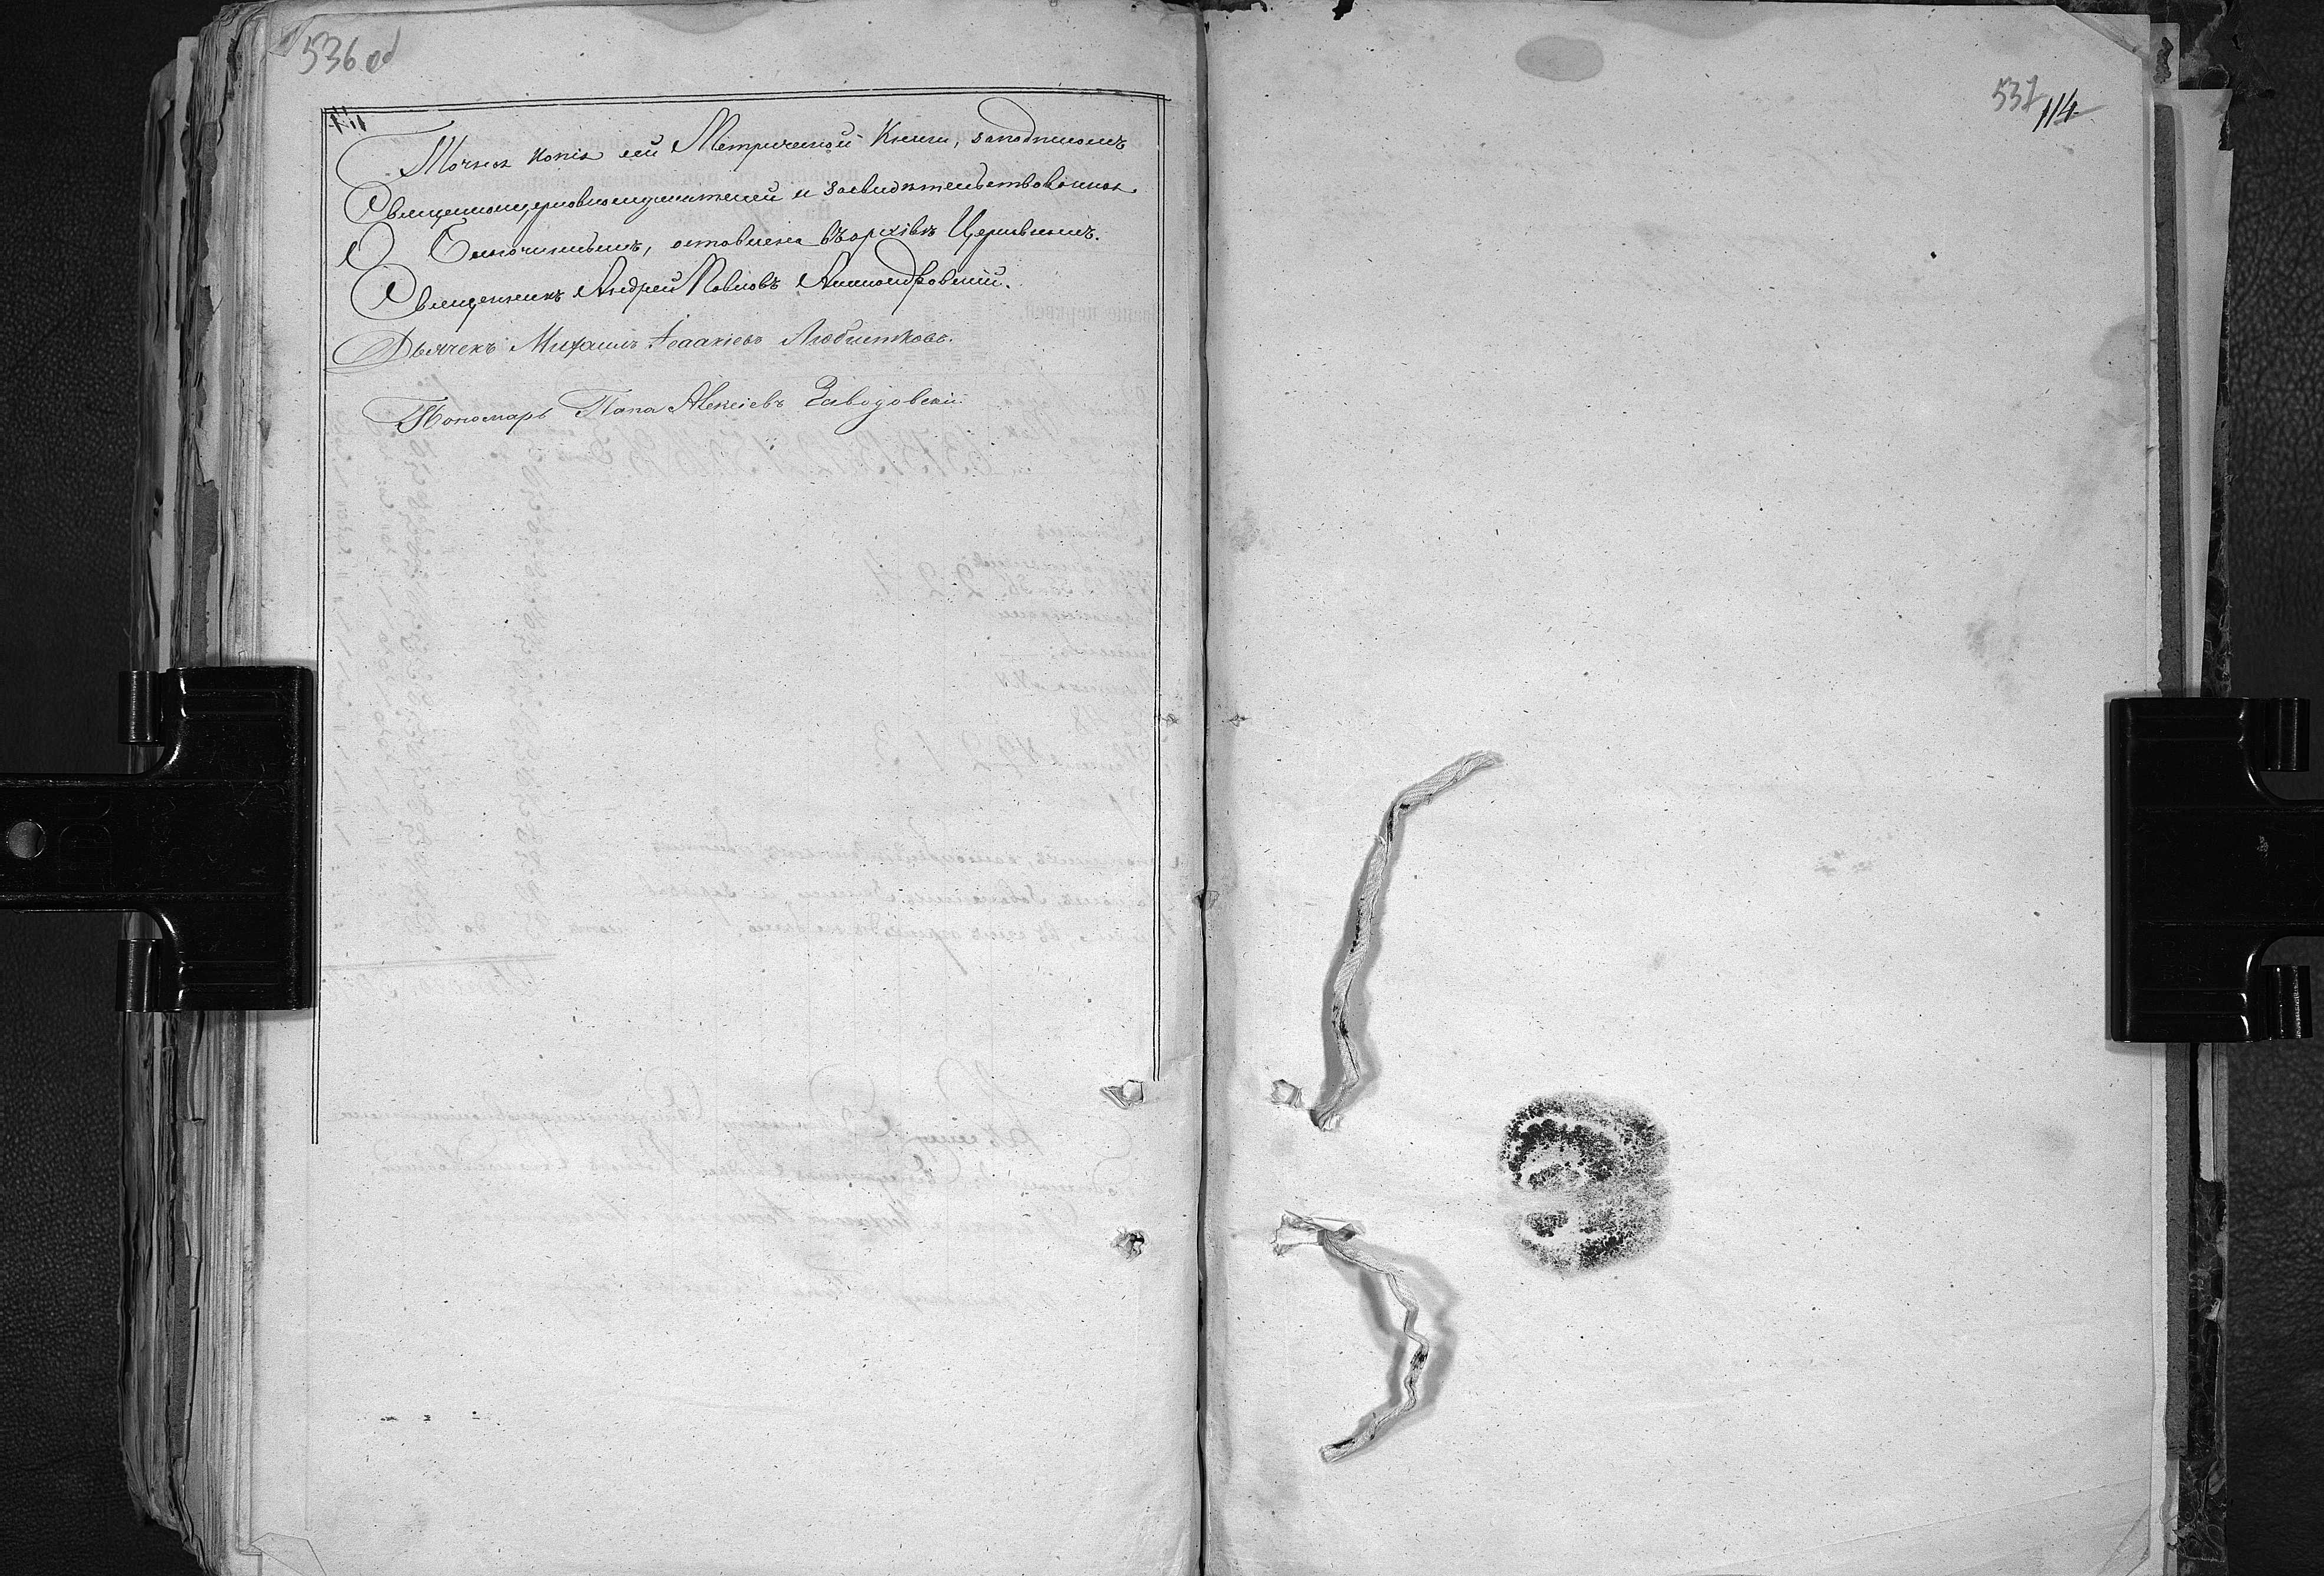 536 об
Точная копія сей Метрической Книги, за подписомъ
Священноцерковнослужителей и засвидѣтельствованная
Благочиннымъ, оставлена въ архивѣ Церковномъ.
Священникъ Андрей Павловъ
Дьячекъ Михаилъ Ісаакіевъ
Пономарь Папа Алексіевъ Заводовскій
537
114